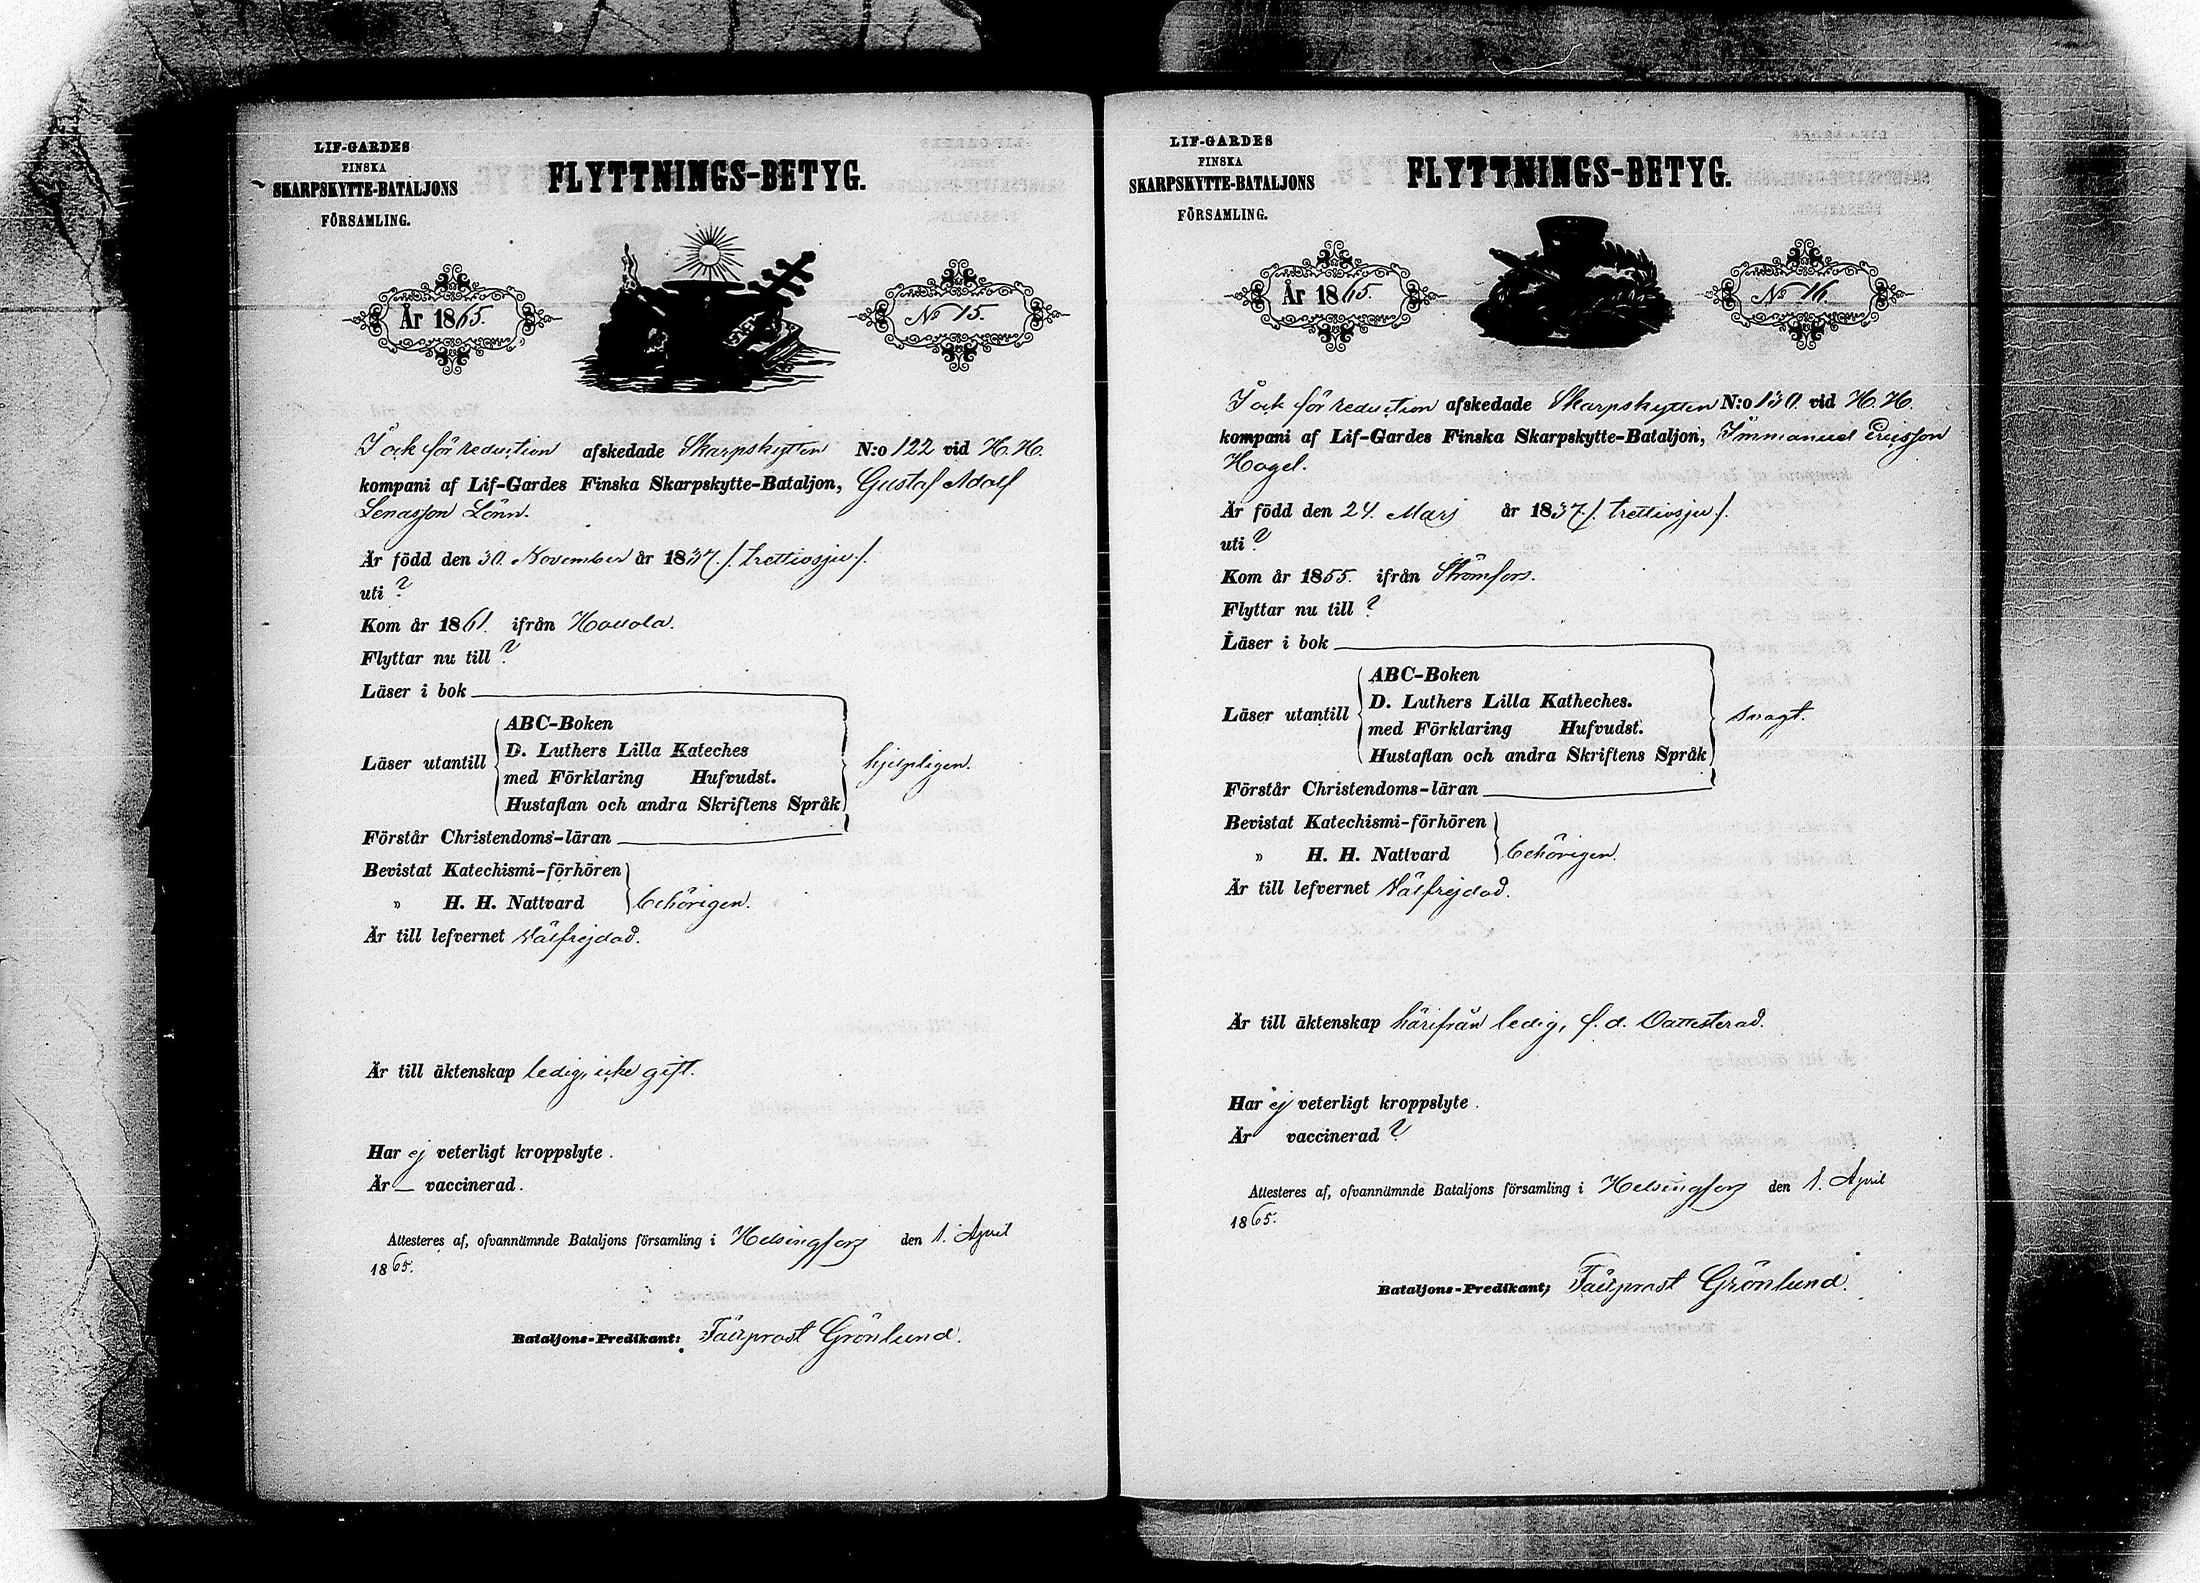 LIF-GARDES
FINSKA
SKARPSKYTTE-BATALJONS
FÖRSAMLING.
FLYTTNINGS-BETYG.
År 1865.
No 15.
I och för reduction afskedade Skarpskytten N:o 122 vid H. H.
kompani af Lif-Gardes Finska Skarpskytte-Bataljon, Gustaf Adolf
Lenasson Lönn.
Är född den 30. November år 1837 /. trettiosju ./.
uti ?
Kom år 1861. ifrån Hollola.
Flyttar nu till ?
Läser i bok
Läser utantill
ABC-Boken
D. Luthers Lilla Kateches
med Förklaring Hufvudst.
Hustaflan och andra Skriftens Språk
hjelpligen.
Förstår Christendoms-läran
Bevistat Katechismi-förhören
" H. H. Nattvard behörigen.
Är till lefvernet Välfrejdad.
Är till äktenskap ledig, icke gift.
Har ej veterligt kroppslyte.
Är — vaccinerad.
Attesteres af, ofvannämnde Bataljons församling i Helsingfors den 1. April
1865.
Bataljons-Predikant: Fältprost Grönlund.
LIF-GARDES
FINSKA
SKARPSKYTTE-BATALJONS
FÖRSAMLING.
FLYTTNINGS-BETYG.
År 1865.
No 16.
I och för reduction afskedade Skarpskytten N:o 130. vid H. H.
kompani af Lif-Gardes Finska Skarpskytte-Bataljon, Immanuel Ericsson
Hagel.
Är född den 24. Mars år 1837 /. trettiosju ./.
uti ?
Kom år 1855. ifrån Strömfors.
Flyttar nu till ?
Läser i bok
Läser utantill
ABC-Boken
D. Luthers Lilla Katheches.
med Förklaring Hufvudst.
Hustaflan och andra Skriftens Språk
svagt.
Förstår Christendoms-läran
Bevistat Katechismi-förhören
" H. H. Nattvard behörigen.
Är till lefvernet Välfrejdad.
Är till äktenskap härifrån ledig, f. d.
Har ej veterligt kroppslyte.
Är vaccinerad ?
Attesteres af, ofvannämnde Bataljons församling i Helsingfors den 1. April
1865.
Bataljons-Predikant; Fältprost Grönlund.